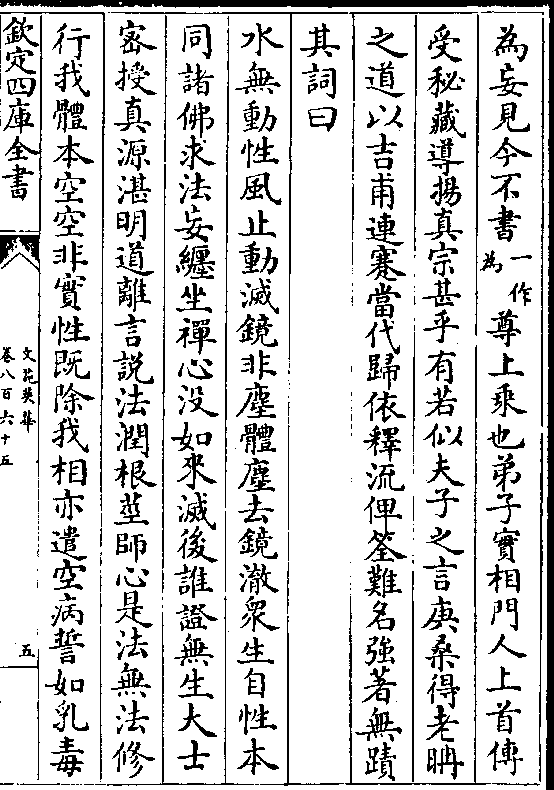 為妄見今不書一作為尊上乗也弟子實相門人上首傳
受秘藏導揚真宗甚乎有若似夫子之言庚桑得老𣆀
之道以吉甫連蹇當代歸依釋流俾筌難名強著無蹟
其詞曰
水無動性風止動滅鏡非塵體塵去鏡澈衆生自性本
同諸佛求法妄纏坐禪心没如來滅後誰證無生大士
密授真源湛明道離言說法潤根莖師心是法無法修
行我體本空空非實性既除我相亦遣空病誓如乳毒
欽定四庫全書
文苑英華
卷八百六十五
五